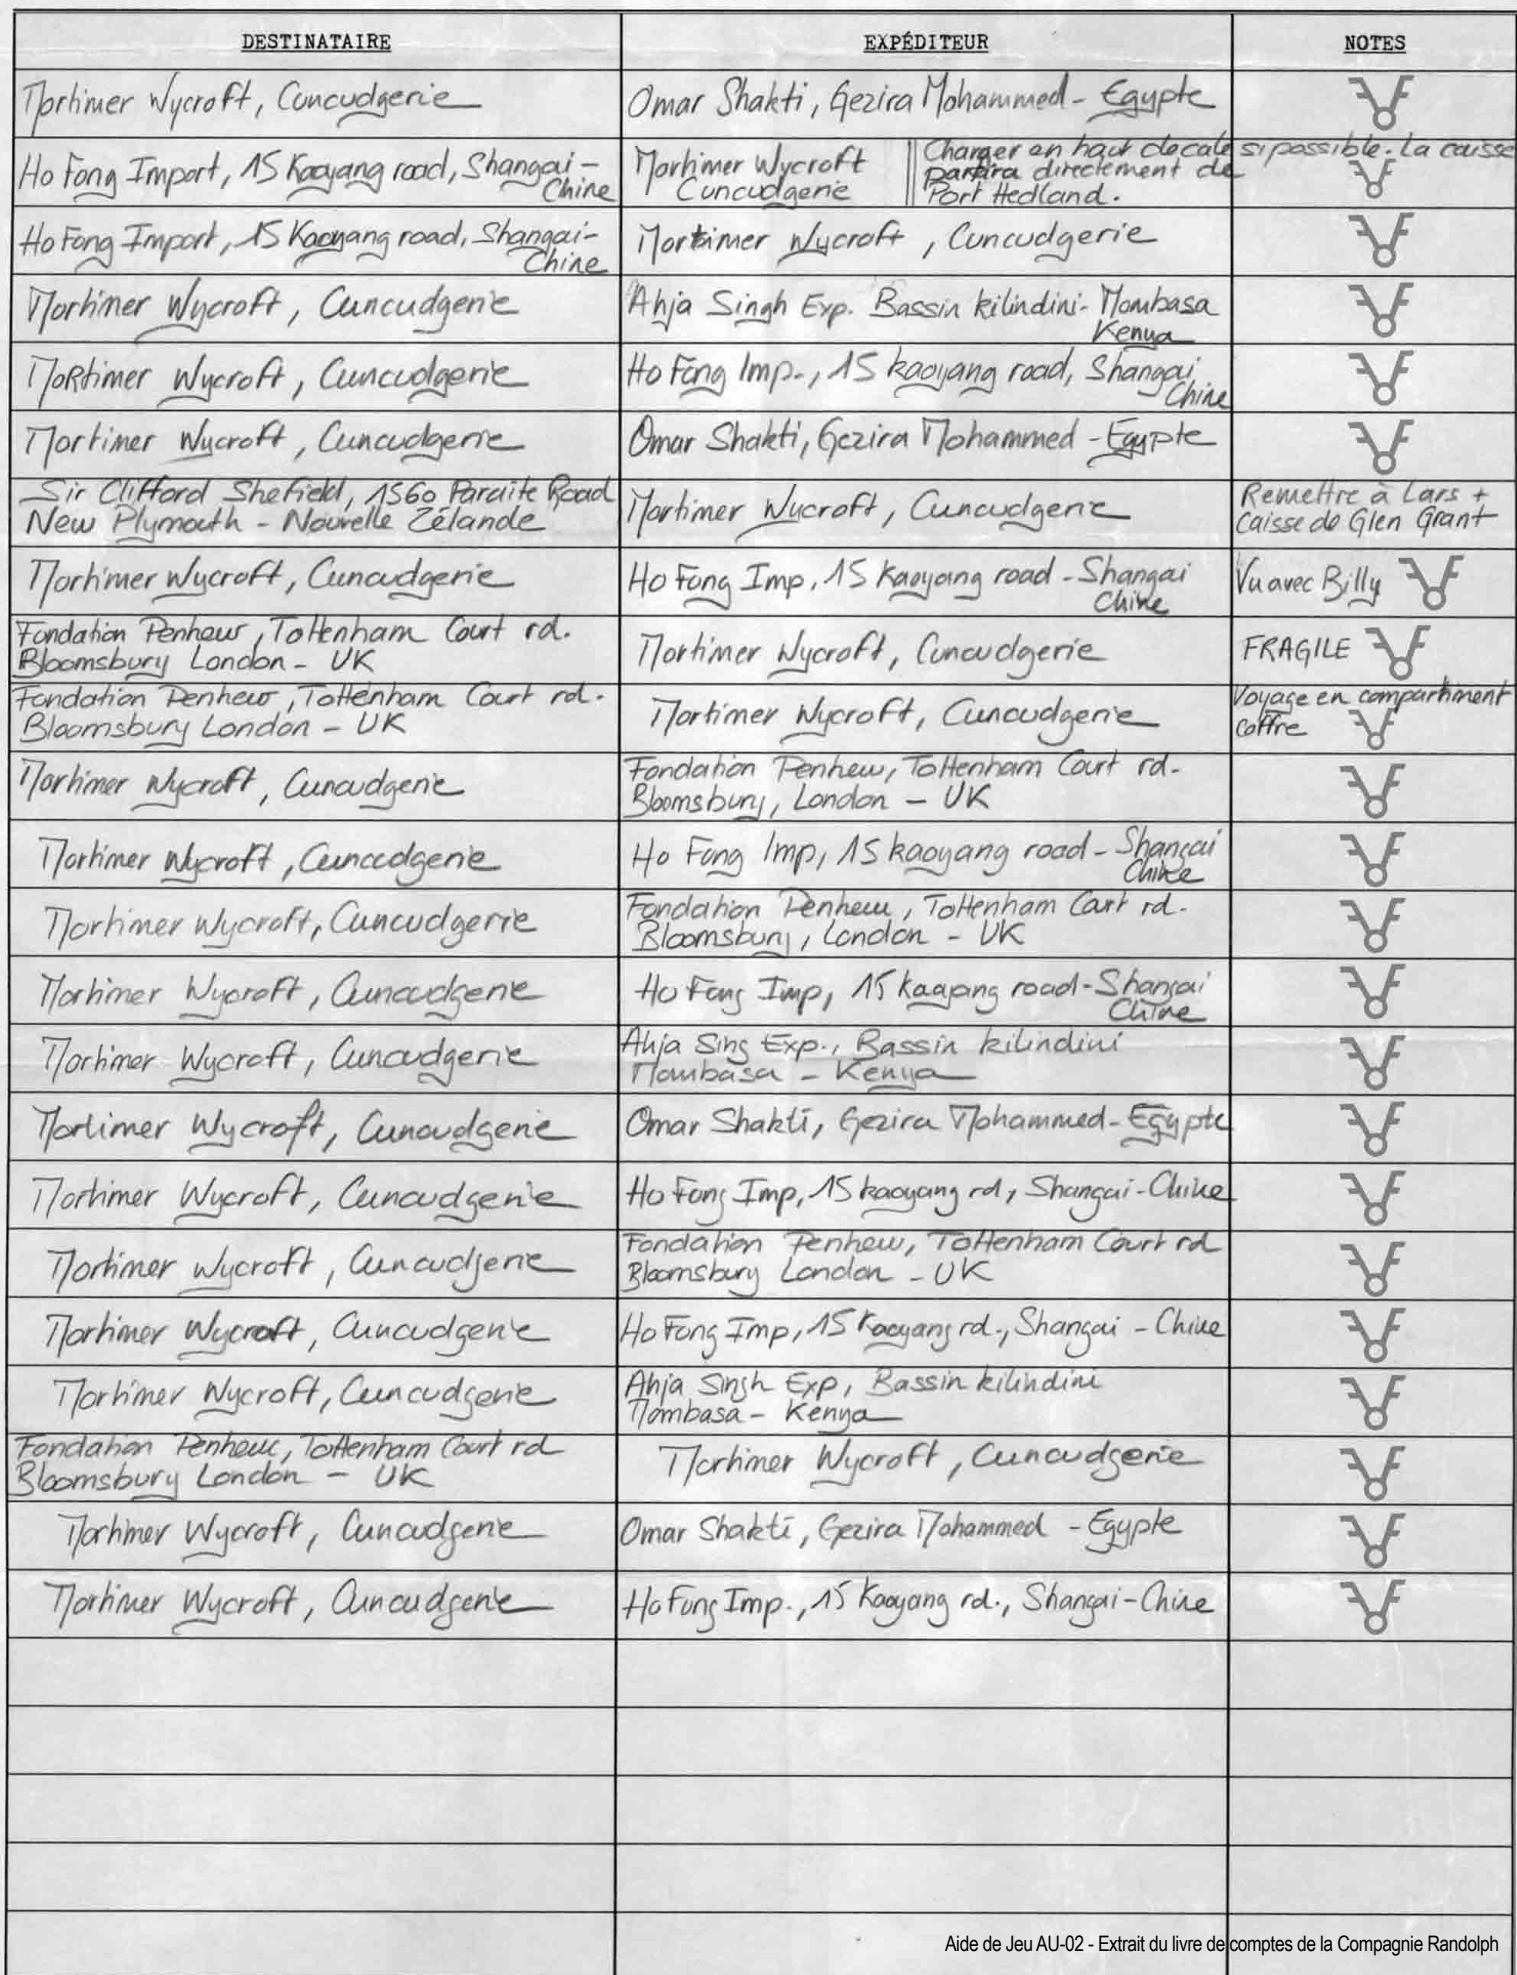 DESTINATAIRE EXPÉDITEUR NOTES
Mortimer Wycroft, Cuncudgerie Omar Shakti, Gezira Mohammed - Egypte
Ho Fong Import, 15 Kaoyang road, Shangai - Chine Mortimer Wycroft Cuncudgerie Charger en haut de cale si possible. La caisse partira directement de Port Hedland.
Ho Fong Import, 15 Kaoyang road, Shangai - Chine Mortimer Wycroft, Cuncudgerie
Mortimer Wycroft, Cuncudgerie Ahja Singh Exp. Bassin kilindini - Mombasa Kenya
Mortimer Wycroft, Cuncudgerie Ho Fong Imp., 15 kaoyang road, Shangai Chine
Mortimer Wycroft, Cuncudgerie Omar Shakti, Gezira Mohammed - Egypte
Sir Clifford Shefield, 1560 Paraite Road Mortimer Wycroft, Cuncudgerie Remettre à Lars +
New Plymouth - Nouvelle Zélande Caisse de Glen Grant
Mortimer Wycroft, Cuncudgerie Ho Fong Imp, 15 Kaoyang road - Shangai Chine Vu avec Billy
Fondation Penhew, Tottenham Court rd.
Bloomsbury London - UK Mortimer Wycroft, Cuncudgerie FRAGILE
Fondation Penhew, Tottenham Court rd. Voyage en compartiment
Bloomsbury London - UK Mortimer Wycroft, Cuncudgerie coffre
Mortimer Wycroft, Cuncudgerie Fondation Penhew, Tottenham Court rd.
Bloomsbury, London - UK
Mortimer Wycroft, Cuncudgerie Ho Fong Imp, 15 kaoyang road - Shangai Chine
Mortimer Wycroft, Cuncudgerie Fondation Penhew, Tottenham Court rd.
Bloomsbury, London - UK
Mortimer Wycroft, Cuncudgerie Ho Fong Imp, 15 kaoyang road - Shangai Chine
Mortimer Wycroft, Cuncudgerie Ahja Sing Exp., Bassin kilindini
Mombasa - Kenya
Mortimer Wycroft, Cuncudgerie Omar Shakti, Gezira Mohammed - Egypte
Mortimer Wycroft, Cuncudgerie Ho Fong Imp, 15 kaoyang rd, Shangai - Chine
Mortimer Wycroft, Cuncudgerie Fondation Penhew, Tottenham Court rd
Bloomsbury London - UK
Mortimer Wycroft, Cuncudgerie Ho Fong Imp, 15 Kaoyang rd., Shangai - Chine
Mortimer Wycroft, Cuncudgerie Ahja Singh Exp, Bassin kilindini
Mombasa - Kenya
Fondation Penhew, Tottenham Court rd
Bloomsbury London - UK Mortimer Wycroft, Cuncudgerie
Mortimer Wycroft, Cuncudgerie Omar Shakti, Gezira Mohammed - Egypte
Mortimer Wycroft, Cuncudgerie Ho Fong Imp., 15 Kaoyang rd., Shangai - Chine
Aide de Jeu AU-02 - Extrait du livre de comptes de la Compagnie Randolph